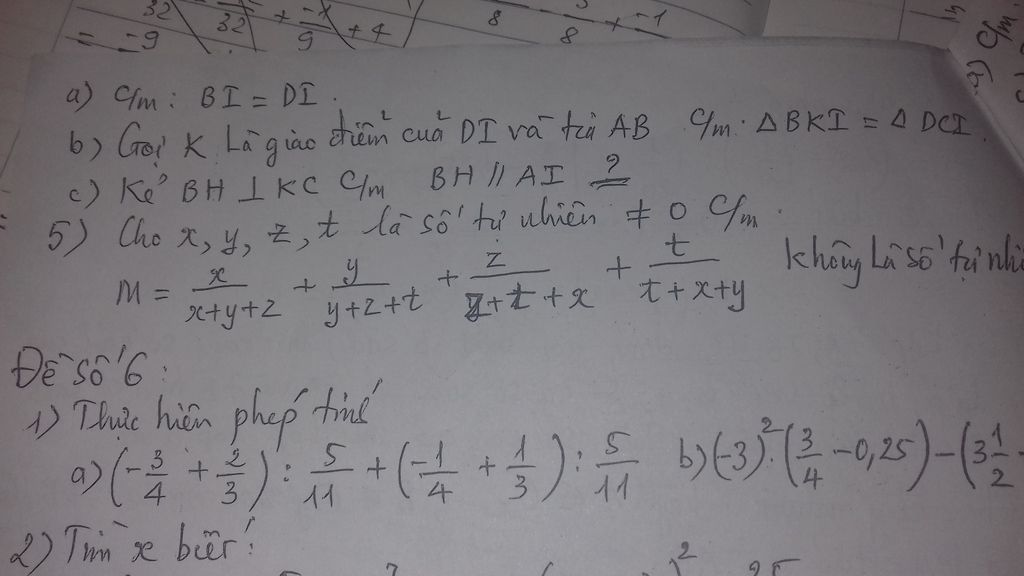 32 32 + -1/9 + 4
= -9
8 8 + -1
c/m
a) c/m: BI = DI.
b) Gọi K là giao điểm của DI và tia AB c/m. ΔBKI = Δ DCI.
c) Kẻ BH ⊥ KC c/m BH // AI ?
5) Cho x, y, z, t là số tự nhiên ≠ 0 c/m.
M = x/(x+y+z) + y/(y+z+t) + z/(z+t+x) + t/(t+x+y) không là số tự
Đề số 6:
1) Thực hiện phép tính
a) (-3/4 + 2/3) : 5/11 + (-1/4 + 1/3) : 5/11 b) (-3)². (3/4 - 0,25) - (3 1/2
2) Tìm x biết: